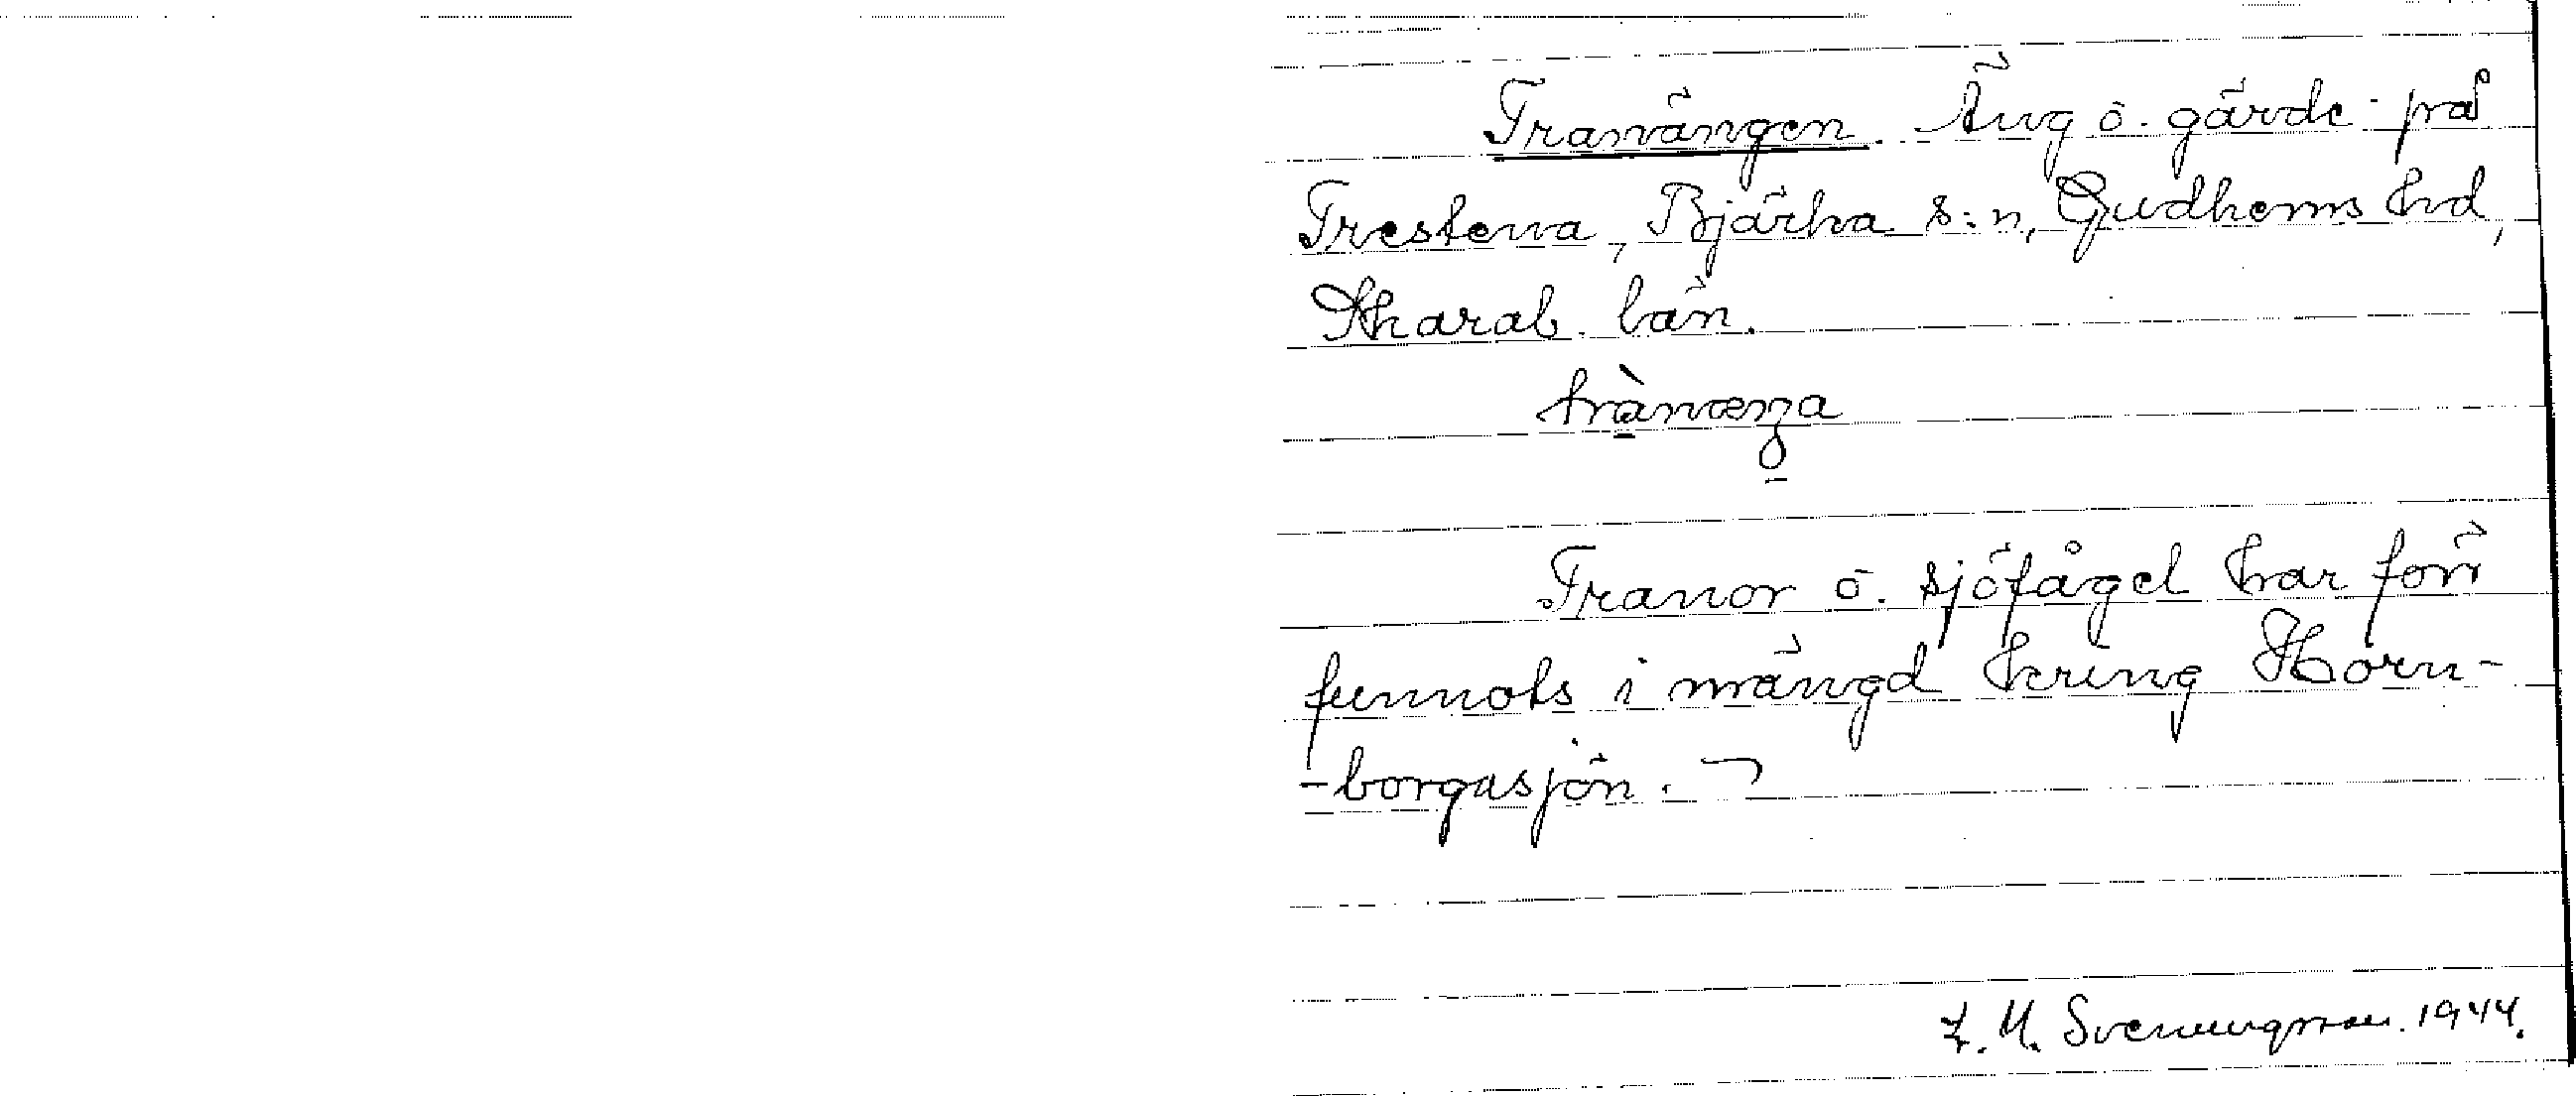 Tranängen. Äng o. gärde på
Trestena, Bjärka s:n, Gudhems hd,
Skarab. län.
Tranor o. sjöfågel har förr
funnits i mängd kring Horn-
-borgasjön. ¬
Svenungsson. 1944.